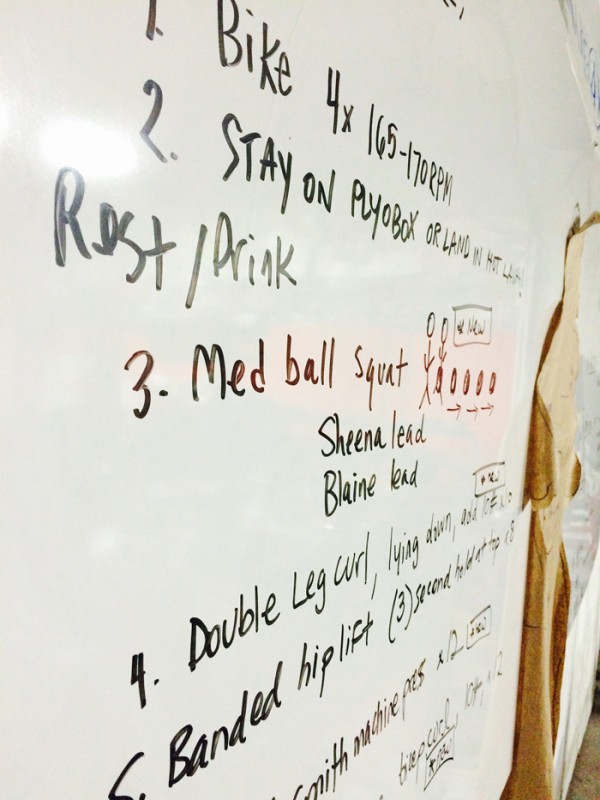 1. Bike 4x 165-170RPM
2. STAY ON PLYOBOX OR LAND IN HOT LAVA!
Rest/Drink
3. Med ball squat * New
Sheena lead
Blaine lead
* new
4. Double Leg curl, lying down, add
5. Banded hip lift (3) second hold at top x8
smith machine press x12 * new
bicep curl, x12
* new